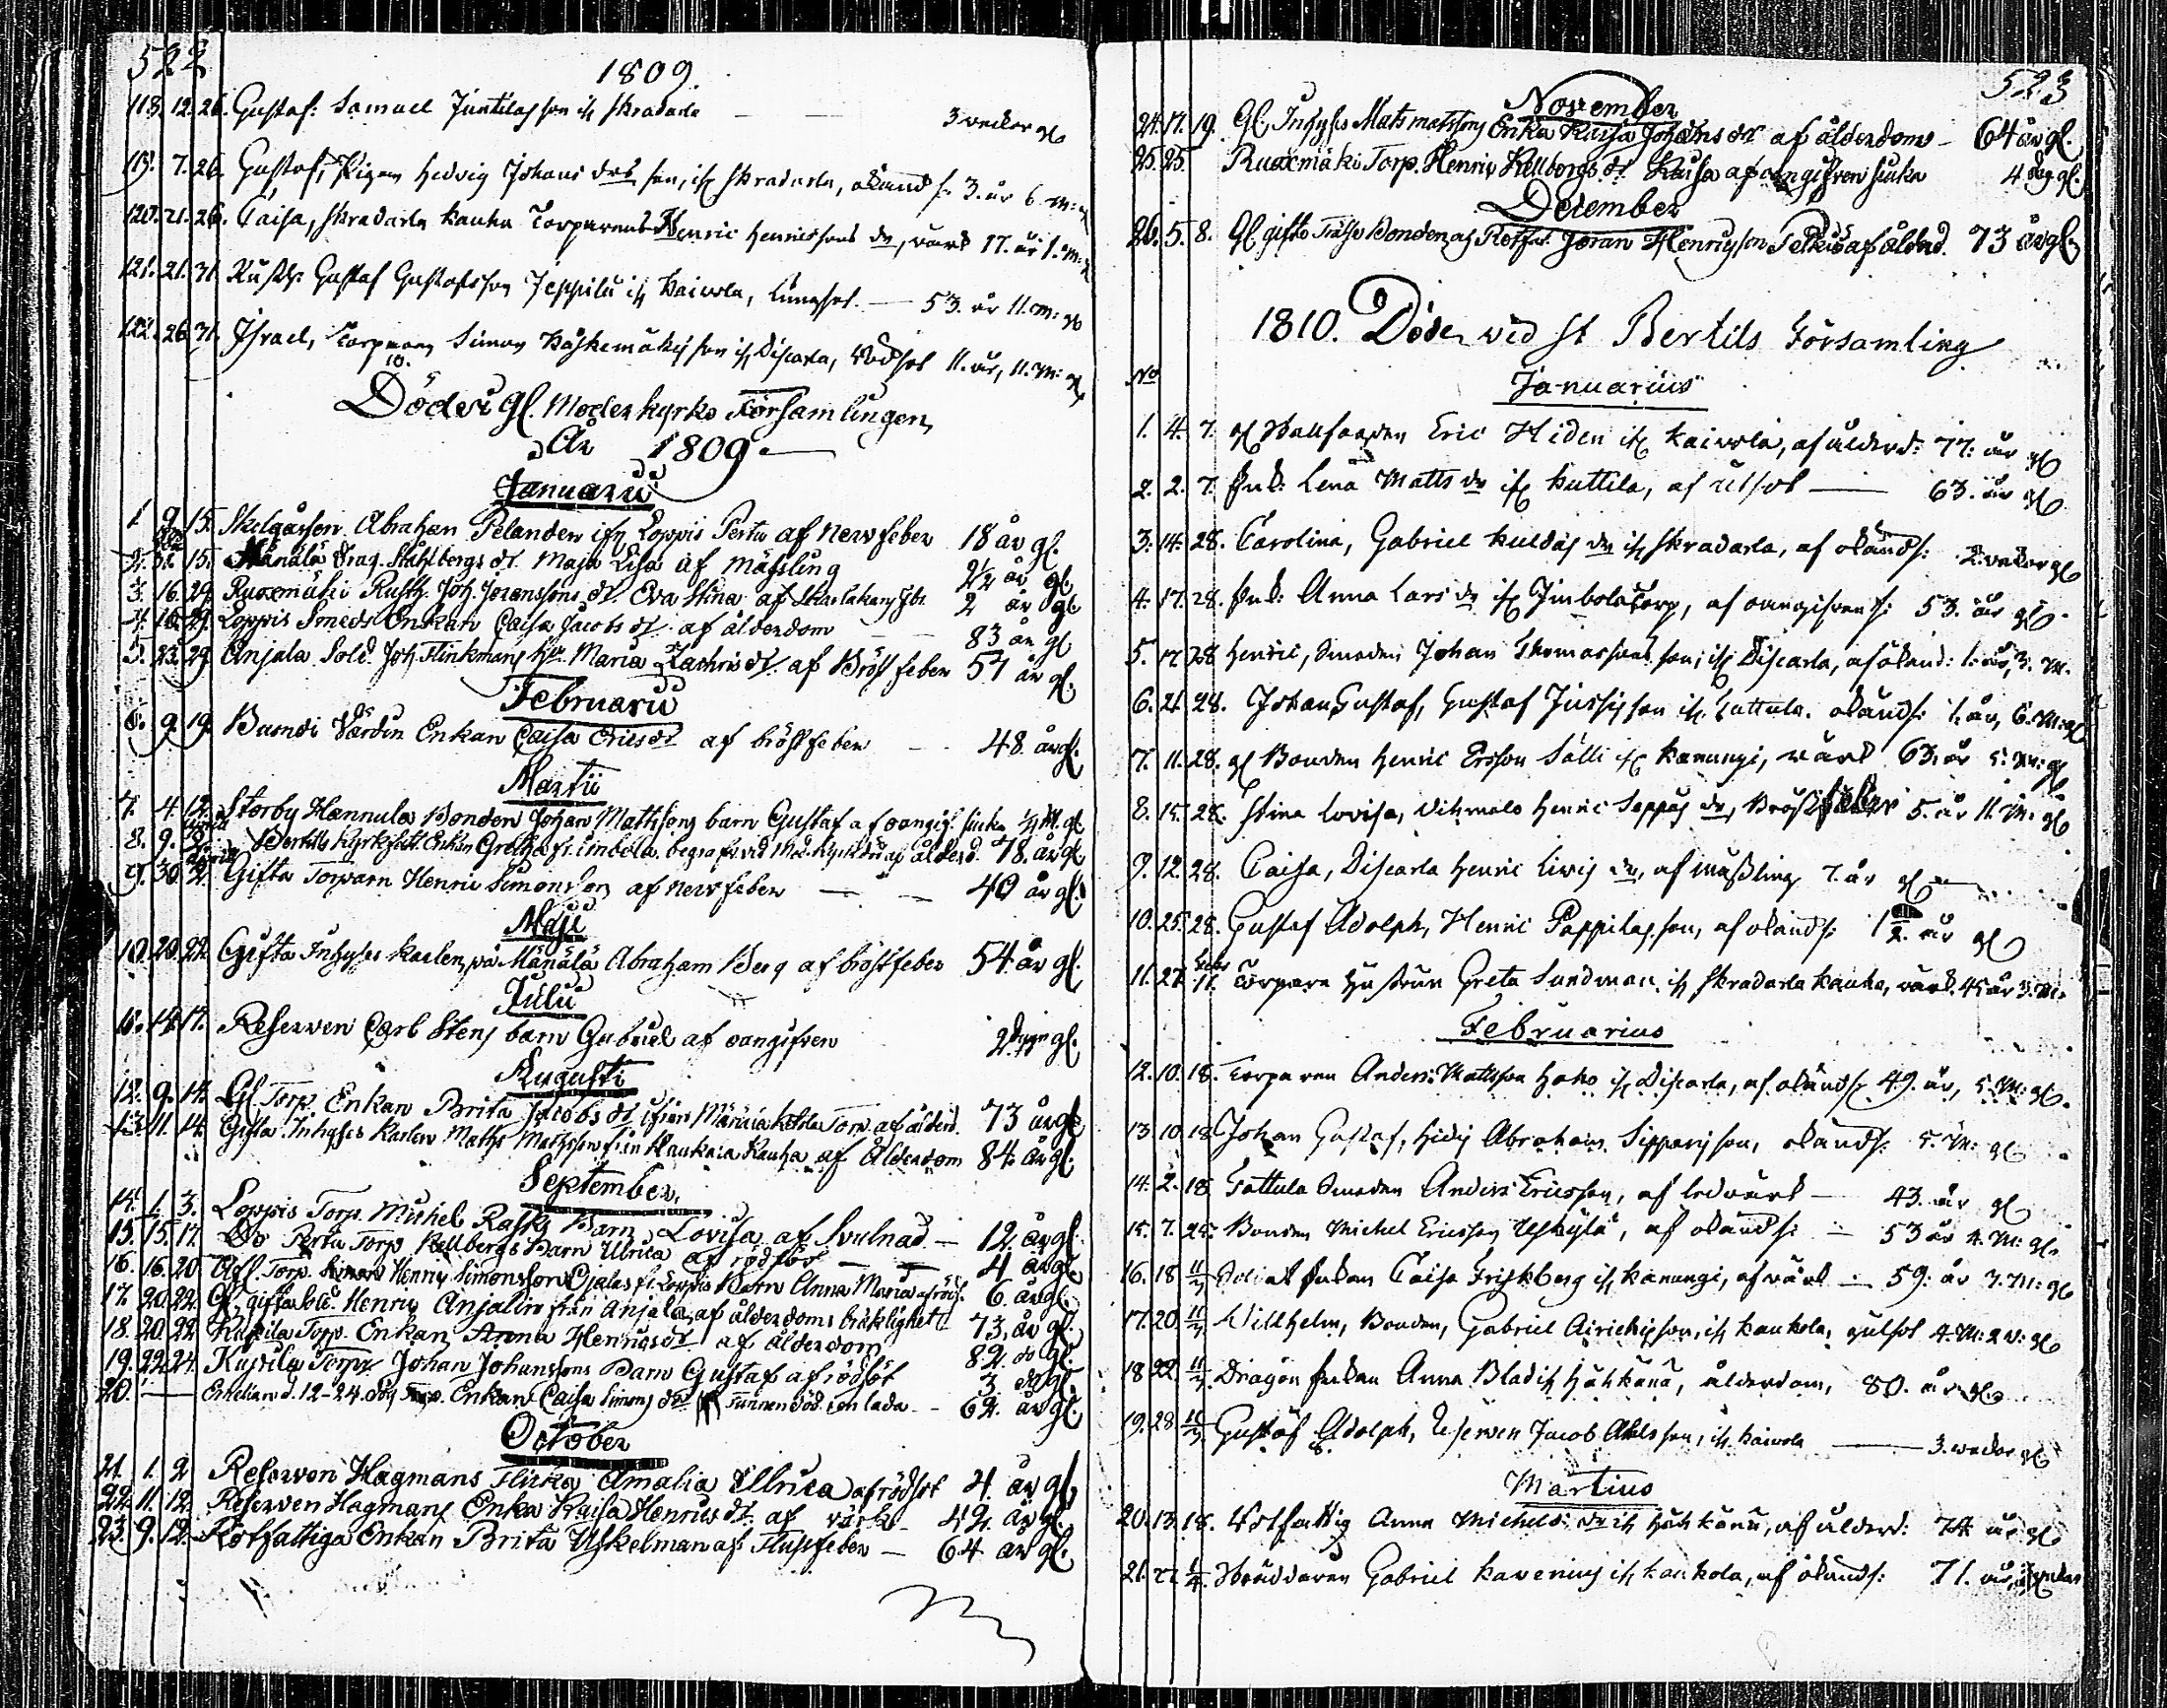 522
1809.
118. 12. 26. Gustaf: Samuel Junttilas son if Skradarla 3 weckor gl
119. 7. 26. Gustaf, Pigan Hedvig Johans drs son, if Skradarla, okänd s. 3. år 6. M:
120. 21. 26. Caisa, Skradarla kauka Torparens Henric Henricssons dr, värk 17. år 1. m:
121. 21. 31. Rusth: Gustaf Gustafsson Jeppilä if Kaivola, Lungsot. 53. år 11. m: gl
122. 26. 31. Israel, Torparen Simon Koskemäkis son if Discarla, Rödsot 11. år, 11. M: gl
Döde i gl. Moderkyrko Församlingen,
År 1809.
Januarii
1 9. 15. Skolgåssen Abraham Pelander ifrn Loppis Pertu af Nervfeber 18 år gl.
2. 31. 15. Mänälä Drag. Stahlbergs dr. Maja Lisa af mässling 2 1/2 år gl.
3. 16. 29. Ruoxmäki Rusth. Joh. Joranssons dr. Eva Stina af Skarlakans fbr 2 år gl
4. 16. 29. Loppis Smeds Enkan Caisa Jacobs dr. af ålderdom 83 år gl
5. 23. 29. Anjala Sold. Joh. Flinkmans hu. Maria Zachris dr. af Bröst feber 57 år gl.
Februarii
6. 9. 19. Buondi Värdin Enkan Caisa Erics dr af bröstfeber 48 år gl.
Martii
7. 4. 12. Storby Hannula Bonden Johan Mathssons barn Gustaf af oangif. siuka 1/4 M. gl
8. 9. Bertills Kyrk fatt. Enkan Gretha fr. Imbola begrafv. vid Mod. Kyrk. du af ålderd. 78. år gl
9. 30. 2. Gifta Torparn Henric Simonsson af nervfeber 40 år gl.
Maji
10. 20. 22. Gifta Inhyses karlen på Mänälä Abraham Berg af bröstfeber 54 år gl.
Julii
11. 14. 17. Reserven Carl Stens barn Gabriel af oangifven 2 dygn gl.
Augusti
12. 9. 14. Gl Torp. Enkan Brita Jacobs dr ifrån Torp. af ålderd. 73 år gl
13. 11. 14. Gifta Inhyses karlen Maths Mathsson från Haukaia Kauka af Ålderdom 84 år gl.
September.
14. 1. 3. Loppis Torp. Michel Rasks Barn Lovisa af Svulnad 12 år gl.
15. 15. 17. Do Pertu Torp. Kellbergs Barn Ulrica af rödsot 4 år gl
16. 16. 20 Torp. Henric Simonsson Ojalas fr. Loppis Barn Anna Maria af röds. 6. år gl.
17. 20. 22. Gl. gifta sold. Henric Anjalin från Anjala, af ålderdoms bräklighet 73. år gl.
18. 20. 22 Kuttila Torp. Enkan Anna Henrics dr. af ålderdom 82. do gl.
19. 22. 24. Kuttila Torpr. Johan Johanssons Barn Gustaf af rödsot 3. do gl.
20. Emellan d. 12-24. dog Torp. Enkan Caisa Simons dr. funnen död i en lada 62. år gl.
October
21. 1. 2 Reserven Hagmans Flicka Amalia Ullrica af rödsot 4. år gl
22. 11. 12. Reserven Hagmans Enka Kaisa Henrics dr. af värk 42. år gl.
23. 9. 12. Rotfattiga Enkan Brita Uskelman af Flussfeber 64 år gl.
523
November
24. 17. 19. Gl. Inhyses Mats Matssons Enka Kaisa Johans dr af ålderdom 64 år gl.
25. 25. Ruoxmäki Torp. Henric Kellbergs dr. Kaisa af oangifven siuka 4 dag. gl.
December
26. 5. 8. Gl gifta Bonden Joran Henricsson Pelkis af ålderd. 73 år gl.
1810. Döde wed St Bertils Församling
No
Januarius
1. 4. 7. gl Eric Hiden if Kaivola, af ålderd: 77: år gl
2. 2. 7. Enk: Lena Matts dr if Kuttila, af rötsot 63. år gl
3. 14. 28. Carolina, Gabriel Kuldas dr if Skradarla, af okänds: 2. veckor gl
4. 17. 28. Enk: Anna Lars dr if Jimbola torp, af oangifven s: 53. år gl
5. 17. 28 Henric, Smeden Johan Thomassons son, if Discarla, af okänd: 1. år, 3. M.
6. 21. 28. Johan Gustaf, Gustaf Jussis son if. Tattula. okänds: 1. år, 6. M: gl
7. 11. 28. gl Bonden Henric Ersson Sälli if Kanungi, värk 63. år 5. M: gl
8. 15. 28. Stina Lovisa, Henric Seppäs dr, Bröstfeber 5. år 11. M. gl
9. 12. 28. Caisa, Discarla Henric Livis dr, af mässling 7. år gl
10. 25. 28. Gustaf Adolph, Henric Pappilas son, af okänds: 1 1/2 år gl
11. 27. 11. Torpare hustrun Greta Sundman if Skradarla kauka, värk. 45 år 3. M.
Februarius
12. 10. 18. Torparen Anders Mattsson Hako if Discarla, af okänds: 49. år, 5. M: gl.
13 10. 18 Johan Gustaf, Abraham Sipparis son, okänds: 5. M: gl
14. 2. 18. Tattula Smeden Anders Ericsson, af ledvärk 43. år gl
15. 7. 25. Bonden Michel Ericsson Uskylä, af okänds: 53 år 4. M: gl.
16. 18 11/3 Soldat Enkan Caisa Friskberg if Kanungi, af värk 59: år 7. M: gl
17. 20 11/3 Willhelm, Bonden, Gabriel Airickis son, if Kaukola, gulsot 4. M: 2 v: gl
18 22 11/3 Dragon Enkan Anna Blad if Hähkänä, ålderdom, 80. år gl.
19. 28 11/3 Gustaf Adolph, Reserven Jacob Ahls son, if. Kaivola 3. weckor gl
Martius
20. 13. 18. Rotfattig Anna Michels dr if Hähkänä, af ålderd: 74 år gl
21. 21. 1/4. Gabriel Kavenius if Kaukola, af okänds: 71. år,